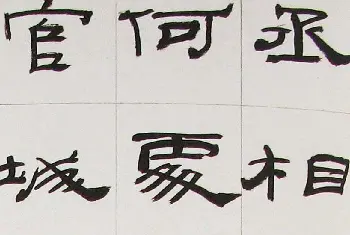 丞相
何處
官城